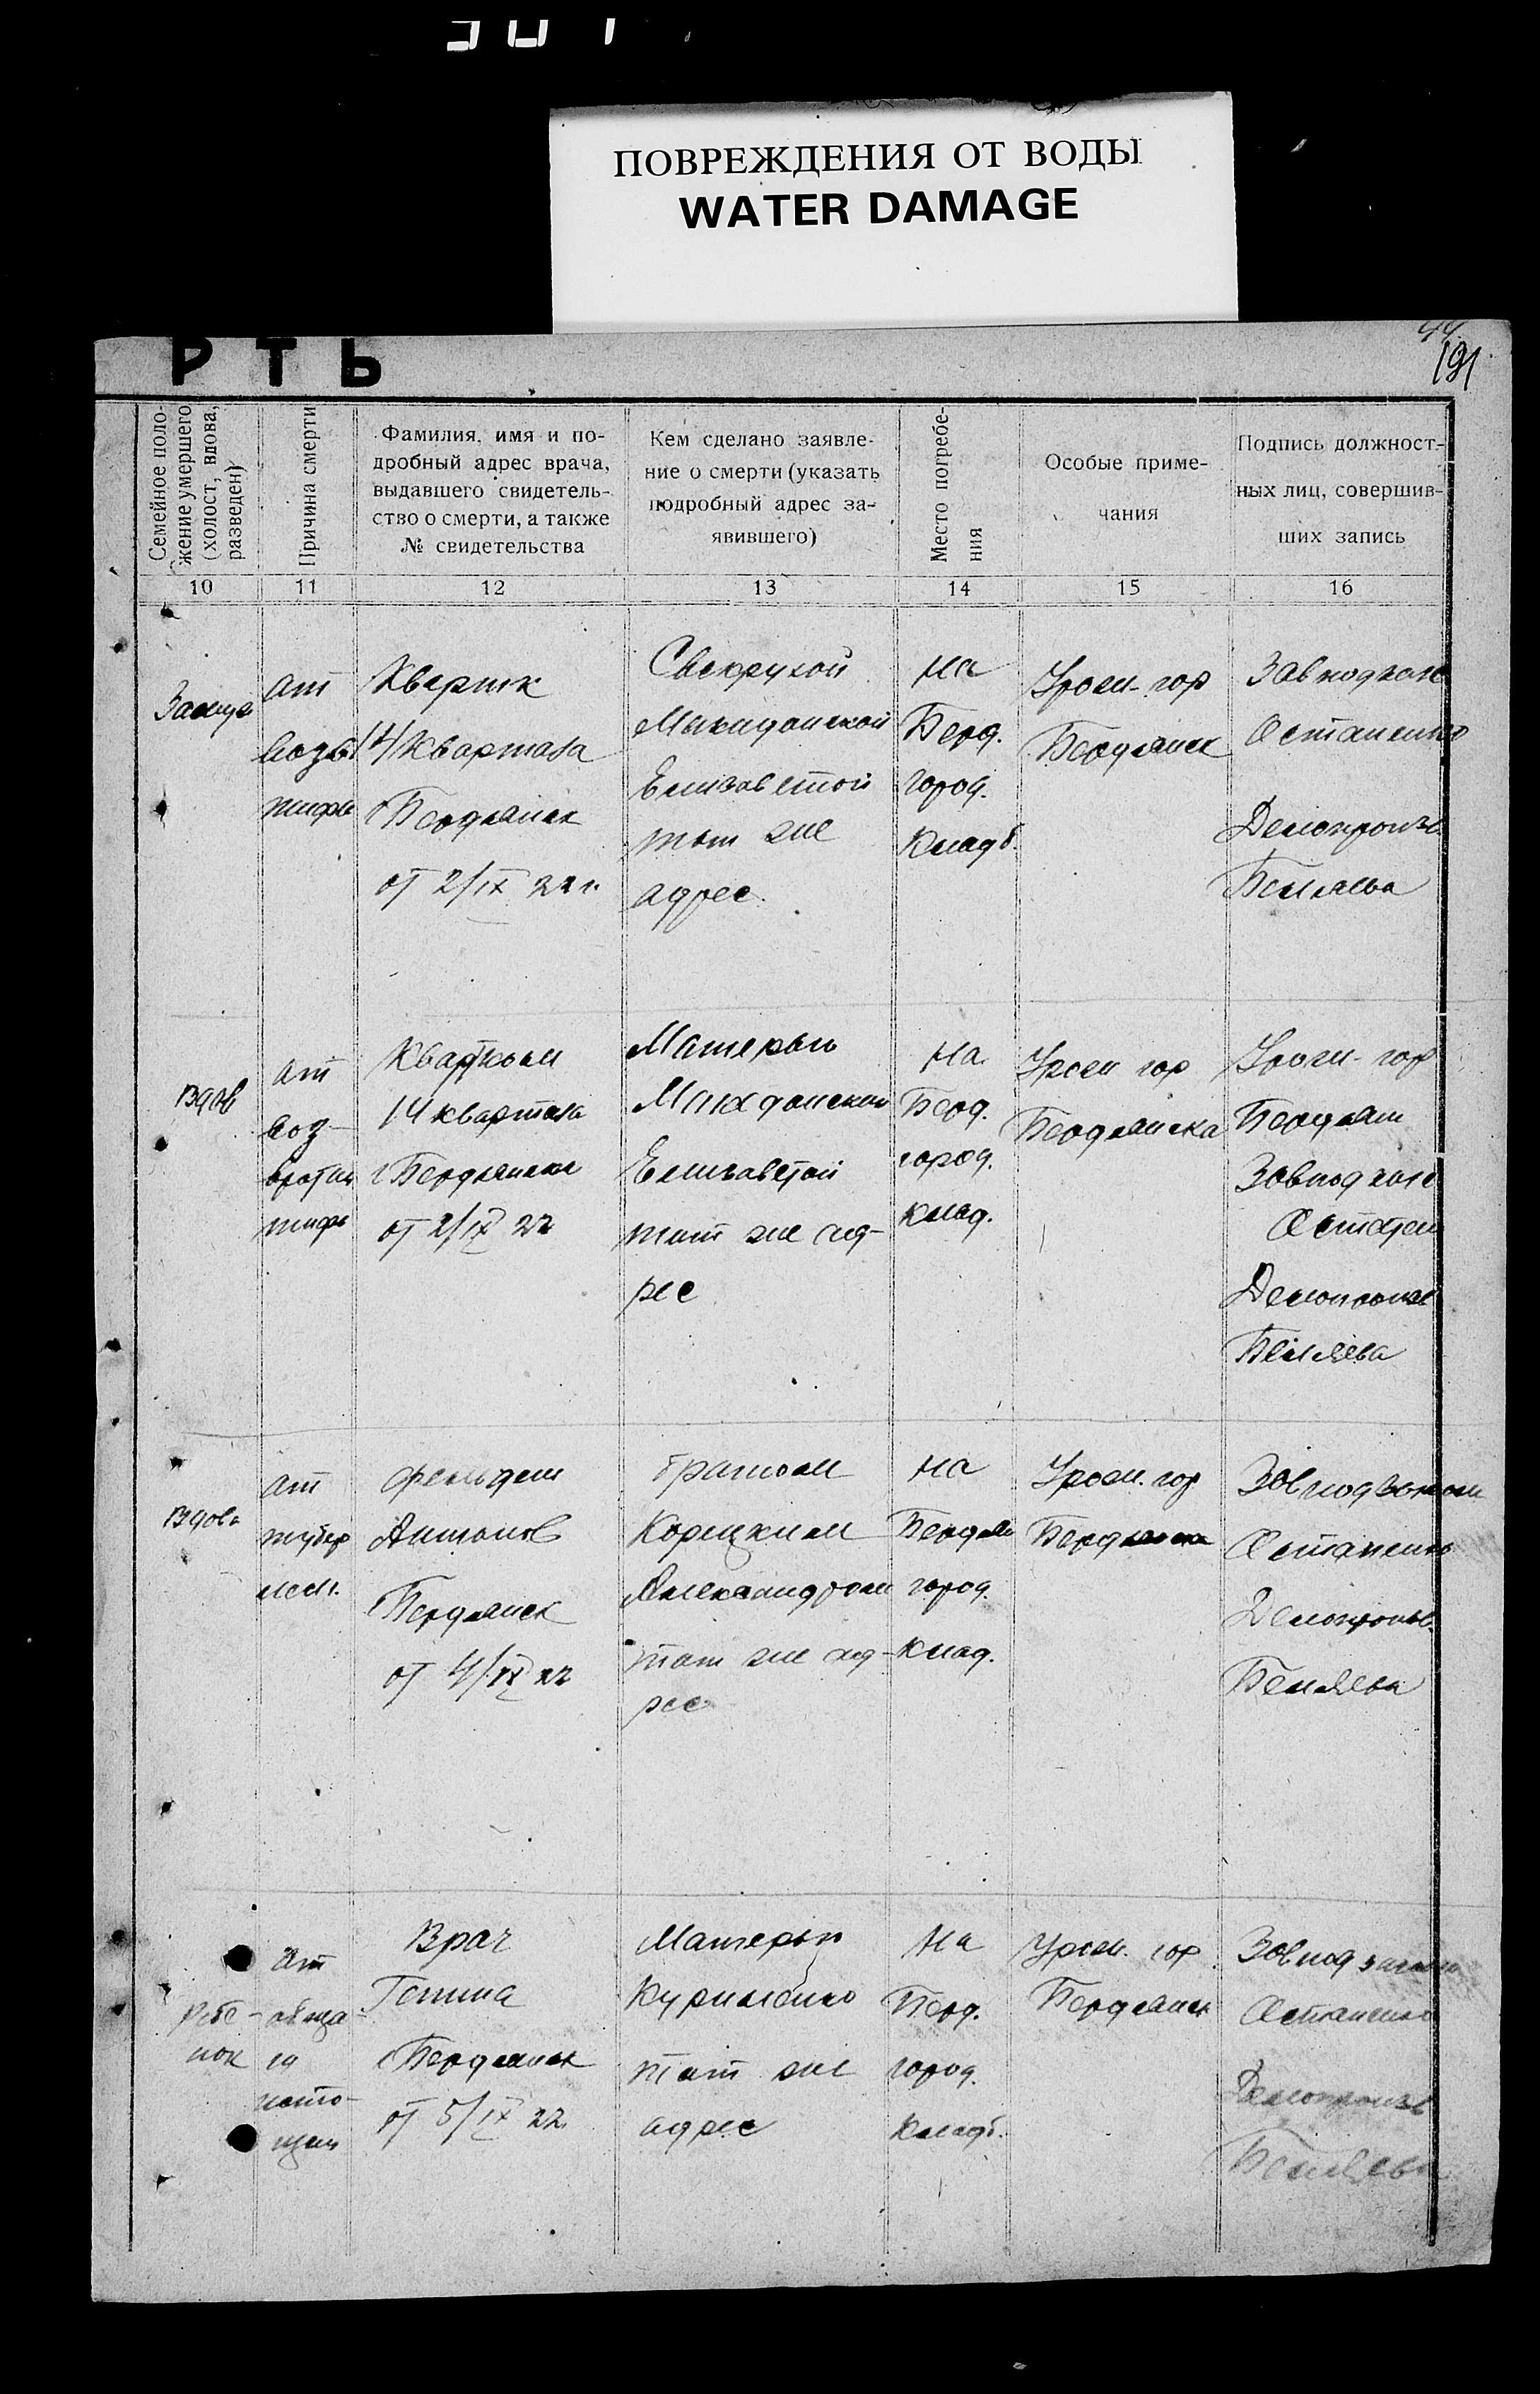 ПОВРЕЖДЕНИЯ ОТ ВОДЫ
WATER DAMAGE
РТЬ
191
Семейное поло-
жение умершего
(холост, вдова,
разведен)
Причина смерти
Фамилия, имя и по-
дробный адрес врача,
выдавшего свидетель-
ство о смерти, а также
№ свидетельства
Кем сделано заявле-
ние о смерти (указать
подробный адрес за-
явившего)
Место погребе-
ния
Особые приме-
чания
Подпись должност-
ных лиц, совершив-
ших запись
10 11 12 13 14 15 16
от
тифа
14 квартала
г Бердянск
от 2/IX 22 г.
Свекрухой
Елизаветой
тот же
адрес.
На
Берд.
город.
кладб.
Урож. гор
Бердянск
Остапенко
Делопроизв.
Беляева
Вдов
от
воз-
вратн
тифа
14 квартала
г Бердянска
от 2/IX 22
Матерью
Елизаветой
тот же ад-
рес
На
Берд.
город.
клад.
Урож гор
Бердянска
Урож. гор
Бердян
Делопроизв
Беляева
Вдова
от
тубер
лег.
Антонов
г Бердянск
от 4/IX 22
братом
Корецким
Александром
тот же ад-
рес
На
Бердян
город.
клад.
Урож. гор
Бердянска
Остапенко
Делопроизв.
Беляева
Ребе-
нок
от
исто-
щен
Врач
г Бердянск
от 5/IX 22
Матерью
Куриленко
тот же
адрес
На
Берд.
город.
кладб.
Урож. гор
Бердянск
Остапенко
Делопроизв
Беляева